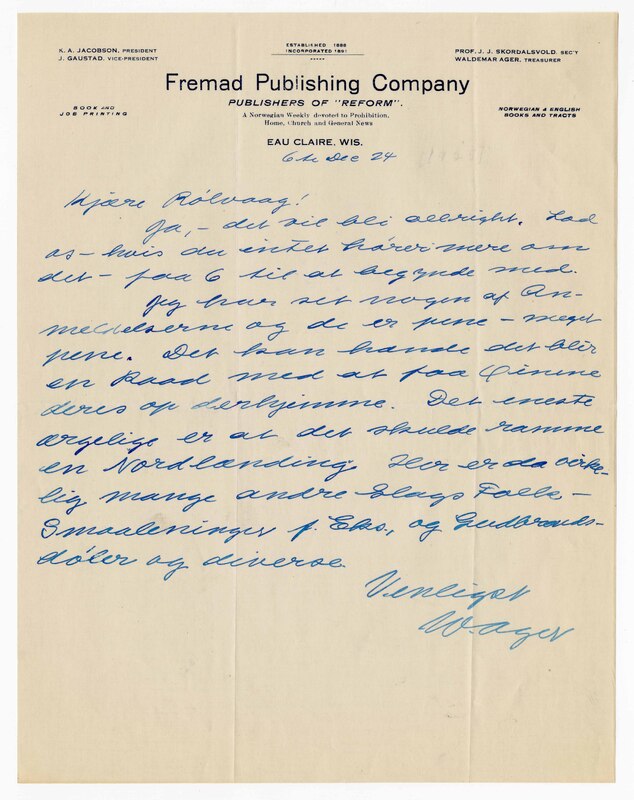 ESTABLISHED 1886
INCORPORATED 1891
K. A. JACOBSON, PRESIDENT
J. GAUSTAD, VICE-PRESIDENT
PROF. J. J. SKORDALSVOLD, SEC'Y
WALDEMAR AGER, TREASURER
Fremad Publishing Company
PUBLISHERS OF "REFORM".
BOOK AND
JOB PRINTING
A Norwegian Weekly devoted to Prohibition,
Home, Church and General News
NORWEGIAN & ENGLISH
BOOKS AND TRACTS
EAU CLAIRE, WIS.
6te Dec 24
Kjære Rölvaag!
Ja, - det vil bli allright. Lad
os - hvis du intet hörer mere om
det - faa 6 til at begynde med.
Jeg har set nogen af An-
meldelserne og de er pene - meget
pene. Det kan hænde det blir
en Raad med at faa Öinene
deres op derhjemme. Det eneste
ærgelige er at det skulde ramme
en Nordlænding. Her er da virke-
lig mange andre Slags Folk -
Smaaleninger f. Eks., og Gudbrands-
döler og diverse.
Venligst
W. Ager